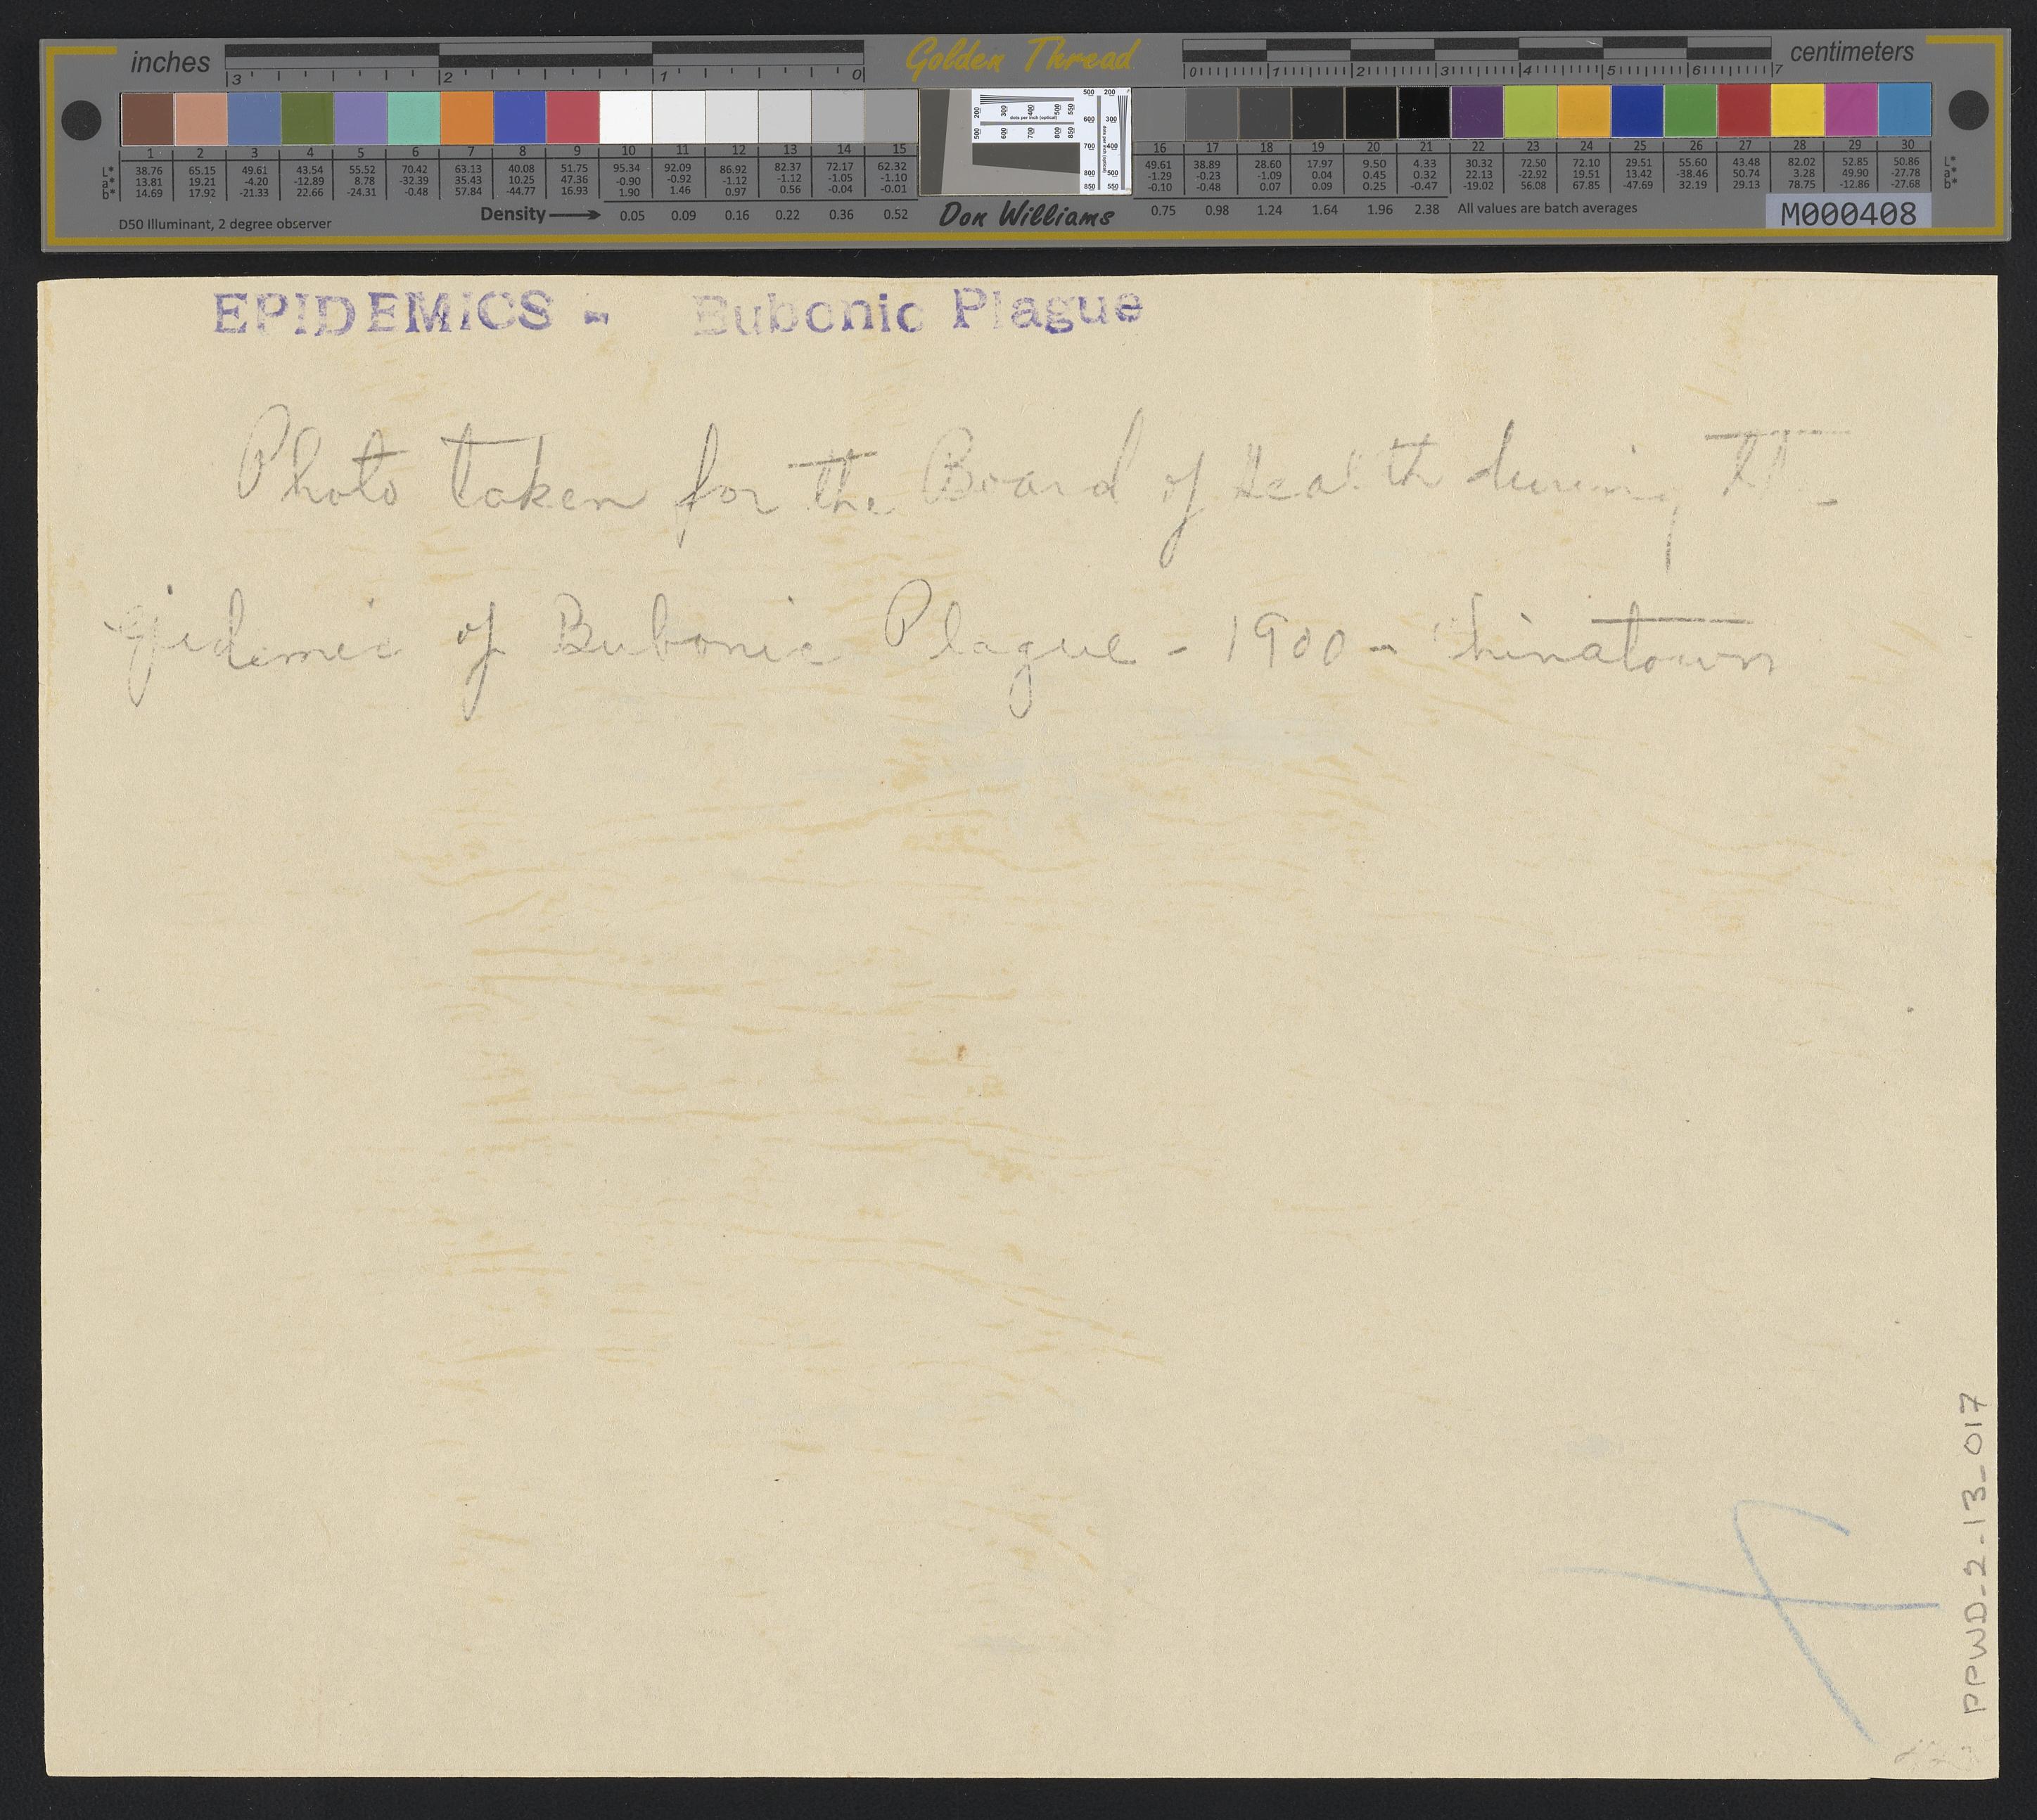 inches
3 2 1 0
Golden Thread
0 1 2 3 4 5 6 7
centimeters
200 300 400 500 550
dots per inch (optical)
500 600 700 800 850
500 200
600 300
700 400
800 500
850 550
1 2 3 4 5 6 7 8 9 10 11 12 13 14 15
L* 38.76 65.15 49.61 43.54 55.52 70.42 63.13 40.08 51.75 95.34 92.09 86.92 82.37 72.17 62.32
a* 13.81 19.21 -4.20 -12.89 8.78 -32.39 35.43 10.25 47.36 -0.90 -0.92 -1.12 -1.12 -1.05 -1.10
b* 14.69 17.92 -21.33 22.66 -24.31 -0.48 57.84 -44.77 16.93 1.90 1.46 0.97 0.56 -0.04 -0.01
16 17 18 19 20 21 22 23 24 25 26 27 28 29 30
49.61 38.89 28.60 17.97 9.50 4.33 30.32 72.50 72.10 29.51 55.60 43.48 82.02 52.85 50.86 L*
-1.29 -0.23 -1.09 0.04 0.45 0.32 22.13 -22.92 19.51 13.42 -38.46 50.74 3.28 49.90 -27.78 a*
-0.10 -0.48 0.07 0.09 0.25 -0.47 -19.02 56.08 67.85 -47.69 32.19 29.13 78.75 -12.86 -27.68 b*
D50 Illuminant, 2 degree observer
Density 0.05 0.09 0.16 0.22 0.36 0.52
Don Williams
0.75 0.98 1.24 1.64 1.96 2.38 All values are batch averages
M000408
EPIDEMICS - Bubonic Plague
Photo taken for the Board of Health during the
epidemic of Bubonic Plague - 1900 - Chinatown
PPWD-2-13-017